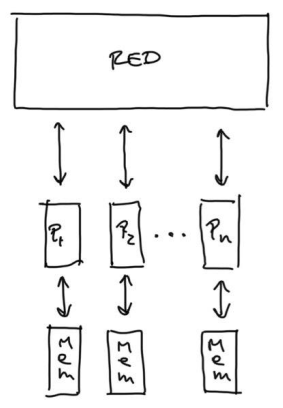 RED
P1 P2 ... Pn
Mem Mem Mem